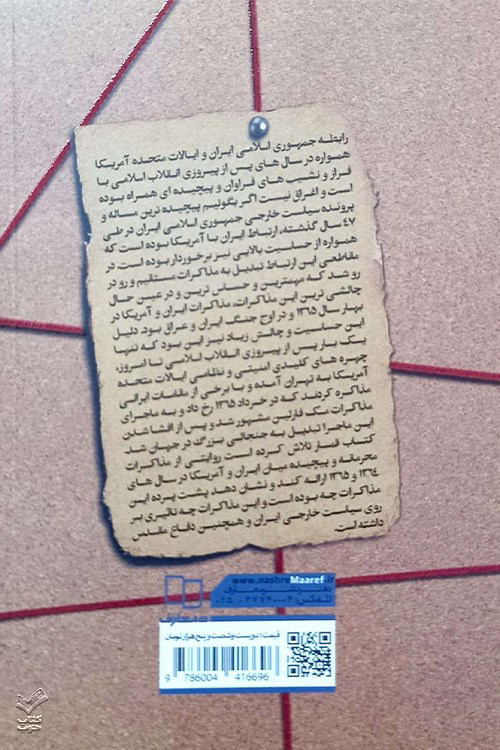 رابطه جمهوری اسلامی ایران و ایالات متحده آمریکا
همواره در سال های پس از پیروزی انقلاب اسلامی با
فراز و نشیب های فراوان و پیچیده ای همراه بوده
است و اغراق نیست اگر بگوئیم پیچیده ترین مساله و
پرونده سیاست خارجی جمهوری اسلامی ایران در طی
۴۷ سال گذشته، ارتباط ایران با آمریکا بوده است که
همواره از حساسیت بالایی نیز برخوردار بوده است. در
مقاطعی این ارتباط تبدیل به مذاکرات مستقیم و رو در
رو شد که مهمترین و حساس ترین و در عین حال
چالشی ترین این مذاکرات، مذاکرات ایران و آمریکا در
بهار سال ۱۳۶۵ و در اوج جنگ ایران و عراق بود. دلیل
این حساسیت و چالش زیاد نیز این بود که تنها
یک بار پس از پیروزی انقلاب اسلامی تا امروز،
چهره های کلیدی امنیتی و نظامی ایالات متحده
آمریکا به تهران آمده و با برخی از مقامات ایرانی
مذاکره کردند که در خرداد ۱۳۶۵ رخ داد و به ماجرای
مذاکرات مک فارلین مشهور شد و پس از افشا شدن
این ماجرا تبدیل به جنجالی بزرگ در جهان شد.
کتاب قمار تلاش کرده است روایتی از مذاکرات
محرمانه و پیچیده میان ایران و آمریکا در سال های
۱۳۶۴ و ۱۳۶۵ ارائه کند و نشان دهد پشت پرده این
مذاکرات چه بوده است و این مذاکرات چه تاثیری بر
روی سیاست خارجی ایران و همچنین دفاع مقدس
داشته است.
www.nashreMaaref.ir
دفتر نشر معارف
تلفکس: ۳۷۷۴۰۰۰۴ - ۰۲۵
قیمت: دویست و شصت و پنج هزار تومان
9 786004 416696